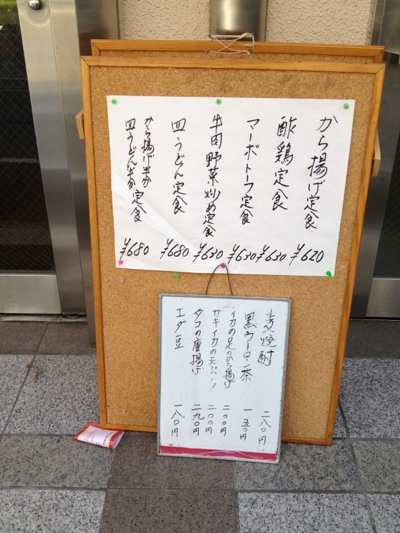 から揚げ定食 ¥620
酢鶏定食 ¥630
マーボトーフ定食 ¥630
牛肉野菜炒め定食 ¥630
皿うどん定食 ¥680
から揚げ半分
皿うどん半分定食 ¥680
麦焼酎 二八〇円
黒ウーロン茶 一五〇円
イカの足のから揚げ 二〇〇円
サキイカの天プラ 二〇〇円
タコの唐揚げ 二九〇円
エダ豆 一八〇円